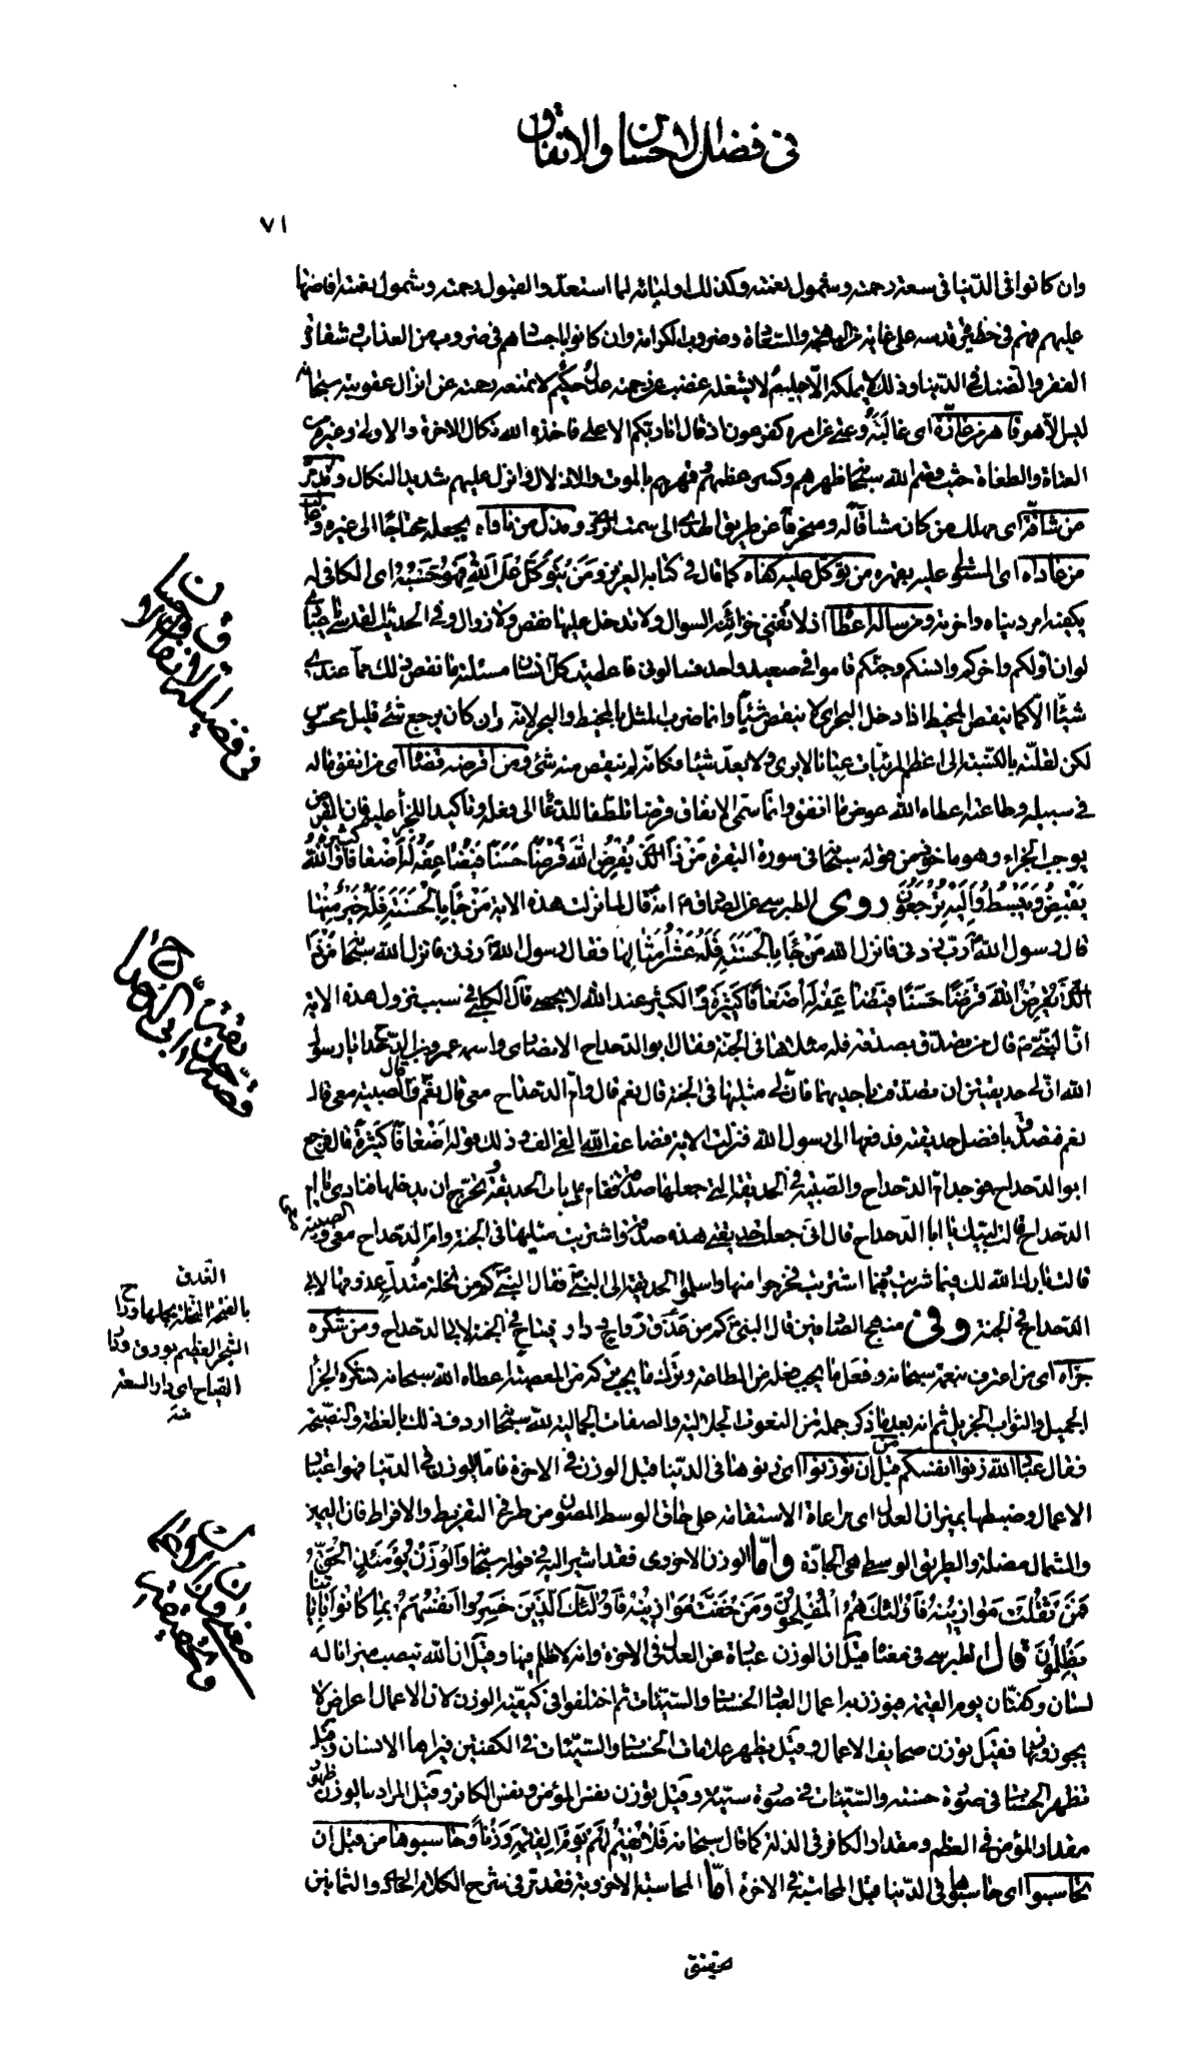 في فضل الاحسان والانفاق
٧١
وان كانوا في الدّنيا في سعة رحمته وشمول نعمته وكذلك اوليائه لما استعدّوا لقبول رحمته وشمول نعمته افاضها
عليهم فهم في حظيرة قدسه على غاية من البهجة والسّعادة وضروب الكرامة وان كانوا باجسادهم في ضروب من العذاب وشقاء
الفقر والضنك في الدّنيا وذلك لا يملكه الّا حليم لا يشغله غضب عن رحمة عدل حكيم لا تمنعه رحمته عن انزال عقوبته سبحانه
ليس الّا هو قاهر من عازّه اى غالبه وعتى عن امره كفرعون اذ قال انا ربّكم الاعلى فاخذه الله نكال الاخرة والاولى وغيره من
العتاة والطغاة حيث قصم الله سبحانه ظهرهم وكسر عظمهم وقهرهم بالموت والاذلال وانزل عليهم شديد النكال ومدمّر
من شاقّه اى مهلك من كان مشاقا له ومنحرفا عن طريق الهدى الى سمت الرّدى ومذلّ من ناواه يجعله محتاجا الى غيره وغالب
من عاداه اى المستولى عليه بقهره من توكّل عليه كفاه كما قال في كتابه العزيز ومن يتوكّل على الله فهو حسبه اى الكافي له
يكفيه امر دنياه واخرته ومن سأله اعطاه اذ لا تفنى خزائنه السوال ولا تدخل عليها نقص ولا زوال وفي الحديث القدسي يا عبادي
لو ان اوّلكم واخركم وانسكم وجنّكم قاموا في صعيد واحد فسالوني فاعطيت كلّ انسان مسئلته ما نقص ذلك ممّا عندي
شيئا الّا كما ينقص المخيط اذا دخل البحر اى لا ينقص شيئا وانما ضرب المثل بالمخيط والبحر لانّه وان كان يرجع بشئ قليل محسوس
لكن لقلّته بالنّسبة الى اعظم المرئيّات عيانا لا يرى ولا يعدّ شيئا فكانّه لم ينقص منه شئ ومن اقرضه قضاه اى من انفق ماله
في سبيله وطاعته اعطاه الله عوض ما انفق وانّما سمّى الانفاق قرضا تلطّفا للدعاء الى فعله وتاكيدا للجزاء عليه فان القرض
يوجب الجزاء وهو ماخوذ من قوله سبحانه في سورة البقرة من ذا الّذى يقرض الله قرضا حسنا فيضاعفه له اضعافا كثيرة والله
يقبض ويبسط واليه ترجعون روى الطبرسي عن الصّادق ع انه قال لما نزلت هذه الاية من جاء بالحسنة فله خير منها
قال رسول الله ص ربّ زدني فانزل الله من جاء بالحسنة فله عشر امثالها فقال رسول الله ص ربّ زدني فانزل الله سبحانه من ذا
الّذى يقرض الله قرضا حسنا فيضاعفه له اضعافا كثيرة والكثير عند الله لا يحصى قال الكلبي في سبب نزول هذه الاية
انّ النبي ص قال من تصدّق بصدقة فله مثلاها في الجنّة فقال ابو الدّحداح الانصاري واسمه عمرو بن الدّحداح يا رسول
الله انّ لي حديقتين ان تصدّقت باحديهما فانّ لي مثليها في الجنة قال نعم قال وامّ الدّحداح معى قال نعم قال والصبية معى قال
نعم فتصدّق بافضل حديقته فدفعها الى رسول الله فنزلت الاية فضاعف الله له صدقته الفى الف وذلك قوله اضعافا كثيرة قال فرجع
ابو الدّحداح فوجد امّ الدّحداح والصّبية في الحديقة الّتى جعلها صدقة فقام على باب الحديقة وتحرّج ان يدخلها فنادى يا امّ
الدّحداح قالت لبّيك يا ابا الدّحداح قال انّى جعلت حديقتى هذه صدقة واشتريت مثليها في الجنّة وامّ الدّحداح معى والصبية معى
قالت بارك الله لك فيما شريت وفيما اشتريت فخرجوا منها واسلموا الحديقة الى النبيّ ص فقال النبيّ ص كم من نخلة متدلّ عذوقها لابي
الدّحداح في الجنة وفي منهج الصّادقين قال النبي ص كم من عذق رداح ودار فياح في الجنّة لابي الدّحداح ومن شكره
جزاه اى من اعترف بنعمته سبحانه وفعل ما يجب فعله من الطاعة وترك ما يجب تركه من المعصية اعطاه الله سبحانه لشكره الجزاء
الجميل والثواب الجزيل ثم انه بعد ما ذكر جملة من النعوت الجلالية والصفات الجمالية لله سبحانه اردف ذلك بالعظة والنصيحة
فقال عباد الله زنوا انفسكم من قبل ان توزنوا اى زنوها في الدّنيا قبل الوزن في الاخرة فامّا الوزن في الدّنيا فهو اعتبار
الاعمال وضبطها بميزان العدل اى مراعاة الاستقامة على حاقّ الوسط المصون من طرفي التفريط والافراط فان اليمين
والشمال مضلة والطريق الوسطى هي الجادّة وامّا الوزن الاخروى فقد اشير اليه في قوله سبحانه والوزن يومئذ الحقّ
فمن ثقلت موازينه فاولئك هم المفلحون ومن خفّت موازينه فاولئك الّذين خسروا انفسهم بما كانوا باياتنا
يظلمون قال الطبرسي في معناه قيل ان الوزن عبارة عن العدل في الاخرة وانه لا ظلم فيها وقيل ان الله ينصب ميزانا له
لسان وكفتان يوم القيمة فيوزن به اعمال العباد الحسنات والسّيئات ثم اختلفوا في كيفيّة الوزن لان الاعمال اعراض لا
يجوز وزنها فقيل توزن صحايف الاعمال وقيل يظهر علامات الحسنات والسّيّئات في الكفتين فيراها الانسان وقيل
تظهر الحسنات في صورة حسنة والسّيّئات في صورة سيّئة وقيل توزن نفس المؤمن ونفس الكافر وقيل المراد بالوزن ظهور
مقدار المؤمن في العظم ومقدار الكافر في الذلة كما قال سبحانه فلا نقيم لهم يوم القيمة وزنا وحاسبوها من قبل ان
تحاسبوا اى حاسبوها في الدّنيا قبل المحاسبة في الاخرة امّا المحاسبة الاخروية فقد مرّ في شرح الكلام الحادى والثمانين
تحقيق
في فضيلة الانفاق والاحسان
قصّة ابي الدحداح
العذق
بالفتح النخلة بحملها ورداح
الشجر العظيم
الفياح اى دار السعة
منه